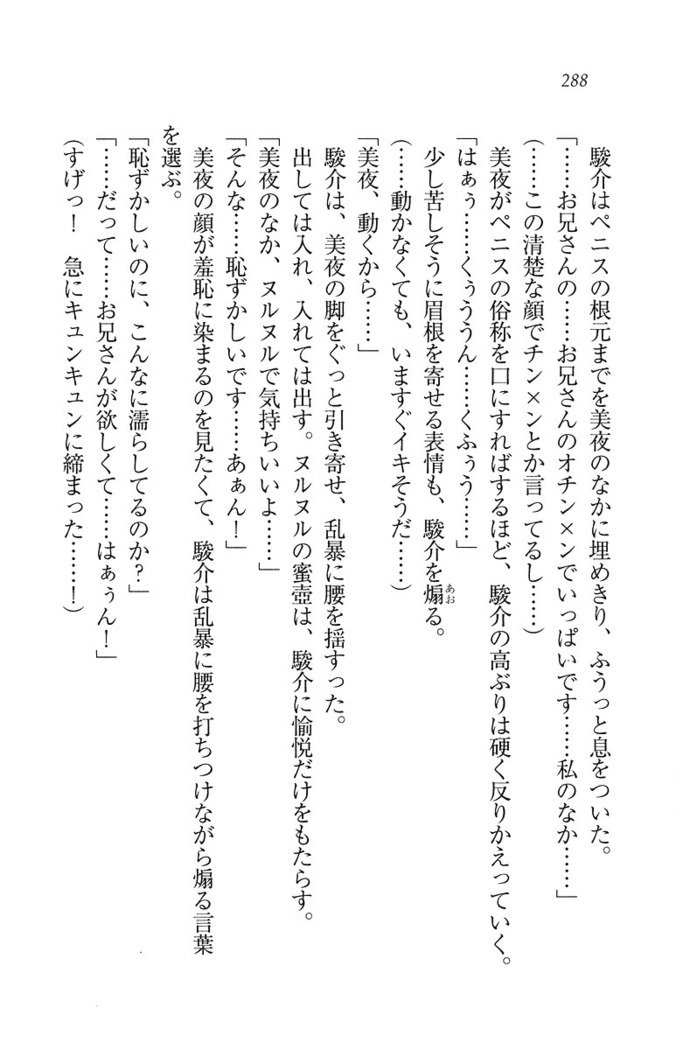 288
駿介はペニスの根元までを美夜のなかに埋めきり、ふうっと息をついた。
「……お兄さんの……お兄さんのオチン×ンでいっぱいです……私のなか……」
（……この清楚な顔でチン×ンとか言ってるし……）
美夜がペニスの俗称を口にすればするほど、駿介の高ぶりは硬く反りかえっていく。
「はぁぅ……くぅううん……くふぅう……」
少し苦しそうに眉根を寄せる表情も、駿介を煽（あお）る。
（……動かなくても、いますぐイキそうだ……）
「美夜、動くから……」
駿介は、美夜の脚をぐっと引き寄せ、乱暴に腰を揺すった。
出しては入れ、入れては出す。ヌルヌルの蜜壺は、駿介に愉悦だけをもたらす。
「美夜のなか、ヌルヌルで気持ちいいよ……」
「そんな……恥ずかしいです……あぁん！」
美夜の顔が羞恥に染まるのを見たくて、駿介は乱暴に腰を打ちつけながら煽る言葉
を選ぶ。
「恥ずかしいのに、こんなに濡らしてるのか？」
「……だって……お兄さんが欲しくて……はぁぅん！」
（すげっ！　急にキュンキュンに締まった……！）